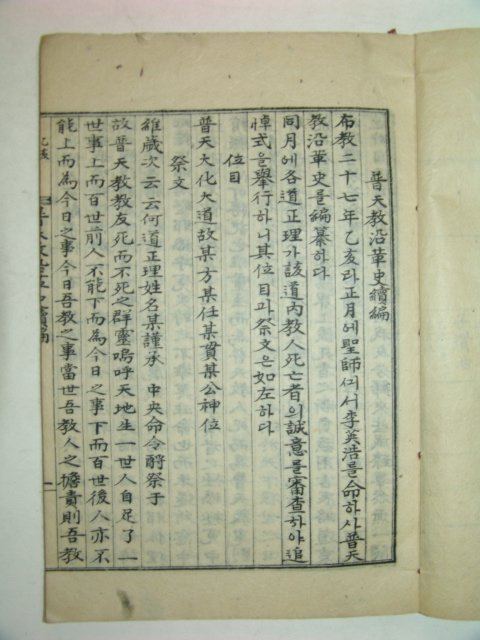 普天教沿革史續編
布教二十七年乙亥라正月에聖師께서李英浩를命하사普天
教沿革史를編纂하다
同月에各道正理가該道內教人死亡者의誠意를審査하야追
悼式을擧行하니其位目과祭文은如左하다
位目
普天大化大道故某方某任某貫某公神位
祭文
維歲次云云何道正理姓名某謹承 中央命令酹祭于
故普天教教友死而不死之群靈嗚呼天地生一世人自足了一
世事上而百世前人不能下而為今日之事下而百世後人亦不
能上而為今日之事今日吾教之事當世吾教人之擔責則吾教